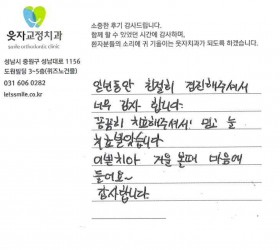 소중한 후기 감사드립니다.
함께 할 수 있었던 시간에 감사하며,
환자분들의 소리에 귀 기울이는 웃자치과가 되도록 하겠습니다.
웃자교정치과
smile orthodontic clinic
성남시 중원구 성남대로 1156
도원빌딩 3~5층(위즈노건물)
031 606 0282
letssmile.co.kr
일년동안 친절히 진료해주셔서
너무 감사 합니다.
꼼꼼히 치료해주셔서 믿고 늘
치료받았습니다
이젠 치아 거울 볼때 마음에
들어요~
감사합니다.